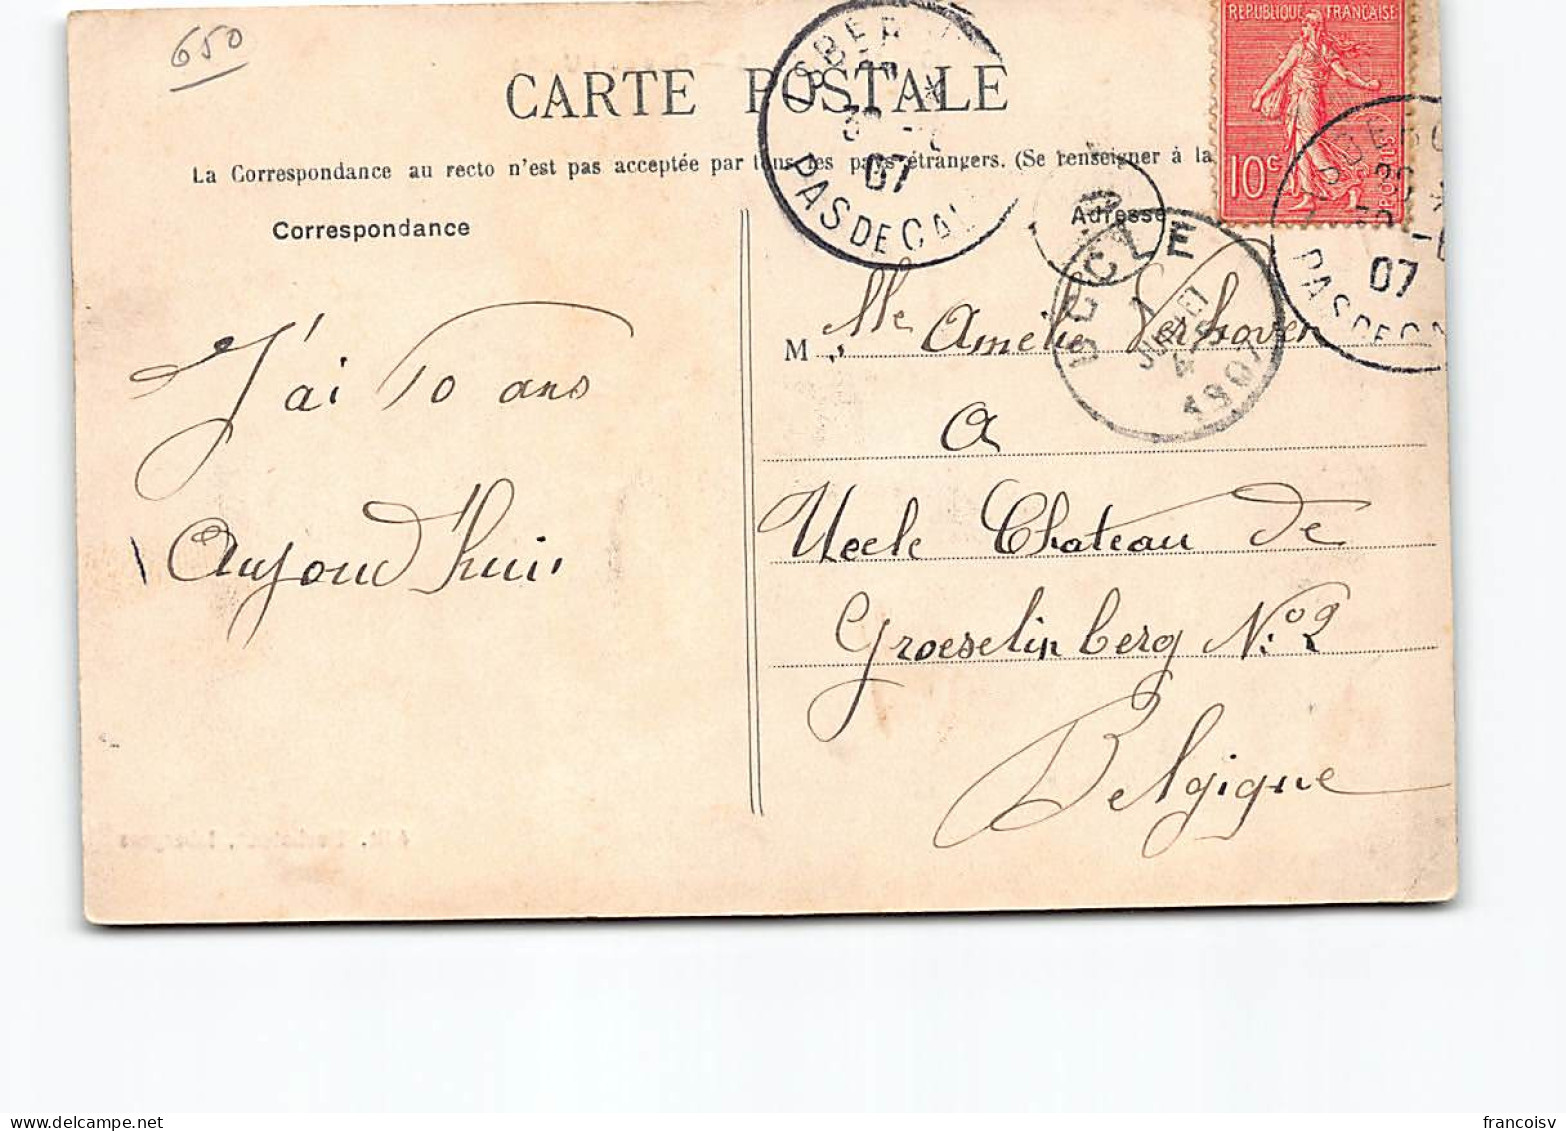 650
CARTE POSTALE
La Correspondance au recto n'est pas acceptée par tous les pays étrangers. (Se renseigner à la
Correspondance
Adresse
REPUBLIQUE FRANÇAISE
10c
POSTES
07
PAS DE CAL
UCCLE
1
JUILLET
1907
07
PAS DE CA
J'ai 10 ans
Aujourd'hui
M Mlle Amelie Verhoven
a
Uccle Chateau de
Groeselinberg No 2
Belgique
francoisv